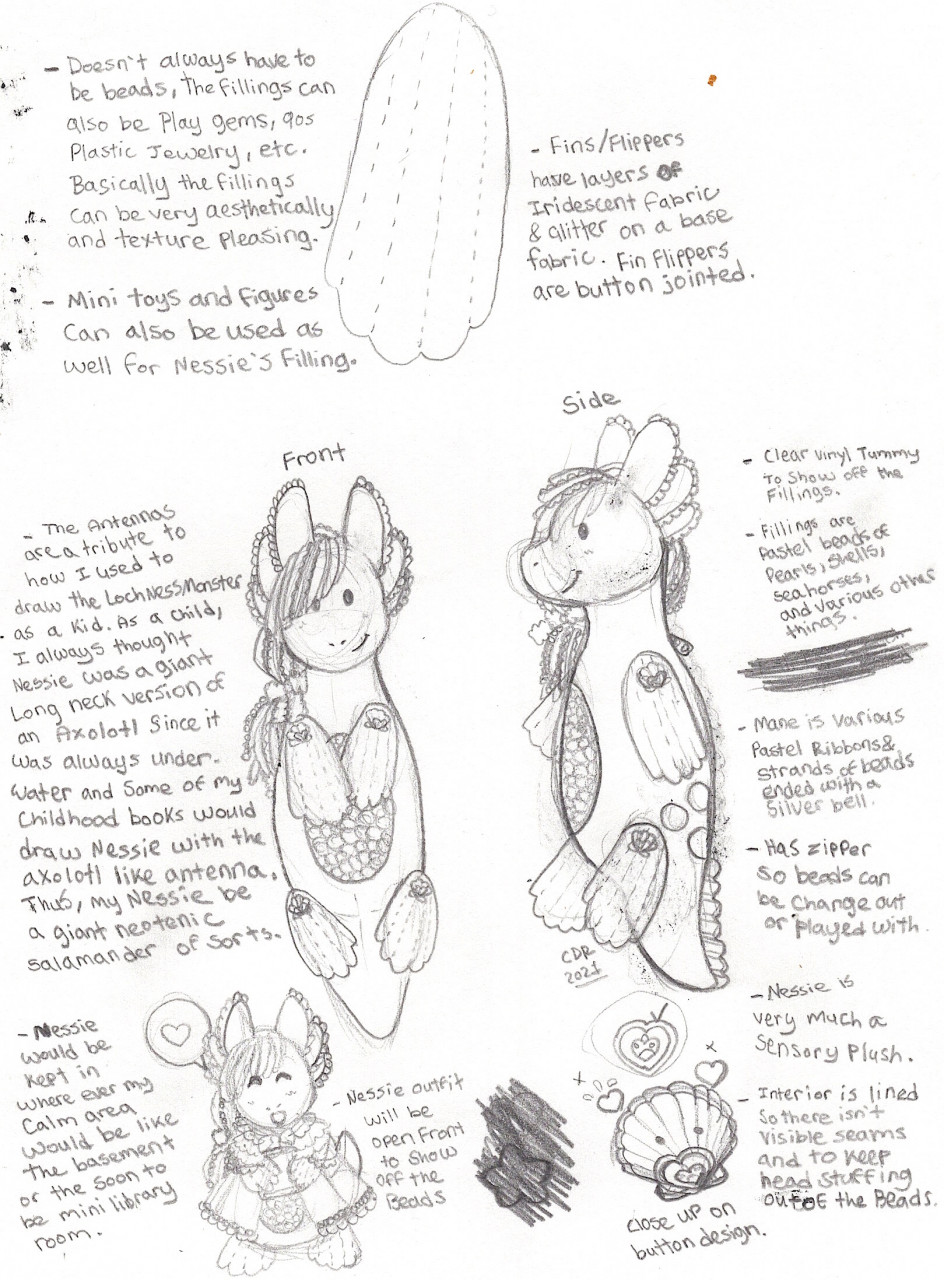 - Doesn't always have to
be beads, The fillings can
also be Play gems, 90s
Plastic Jewelry, etc.
Basically the fillings
can be very aesthetically
and texture pleasing.
- Mini toys and figures
Can also be used as
well for Nessie's Filling.
- Fins/Flippers
have layers of
Iridescent fabric
& Glitter on a base
fabric. Fin flippers
are button jointed.
Front
Side
- The Antennas
are a tribute to
how I used to
draw the LochNessMonster
as a kid. As a child,
I always thought
Nessie was a giant
Long neck version of
an Axolotl Since it
was always under-
water and Some of my
Childhood books would
draw Nessie with the
axolotl like antenna.
Thus, my Nessie be
a giant neotenic
salamander of sorts.
- Clear Vinyl Tummy
To Show off the
Fillings.
- Fillings are
Pastel beads of
Pearls, Shells,
seahorses,
and various other
things.
- Mane is various
Pastel Ribbons &
strands of beads
ended with a
silver bell.
- Has zipper
So beads can
be Change out
or played with.
CDR
2021
- Nessie is
very much a
sensory Plush.
- Interior is lined
So there isn't
visible seams
and to keep
head stuffing
out of the Beads.
- Nessie
would be
kept in
where ever my
Calm area
would be like
the basement
or the soon to
be mini library
room.
- Nessie outfit
will be
open Front
to Show
off the
Beads
Close up on
button design.